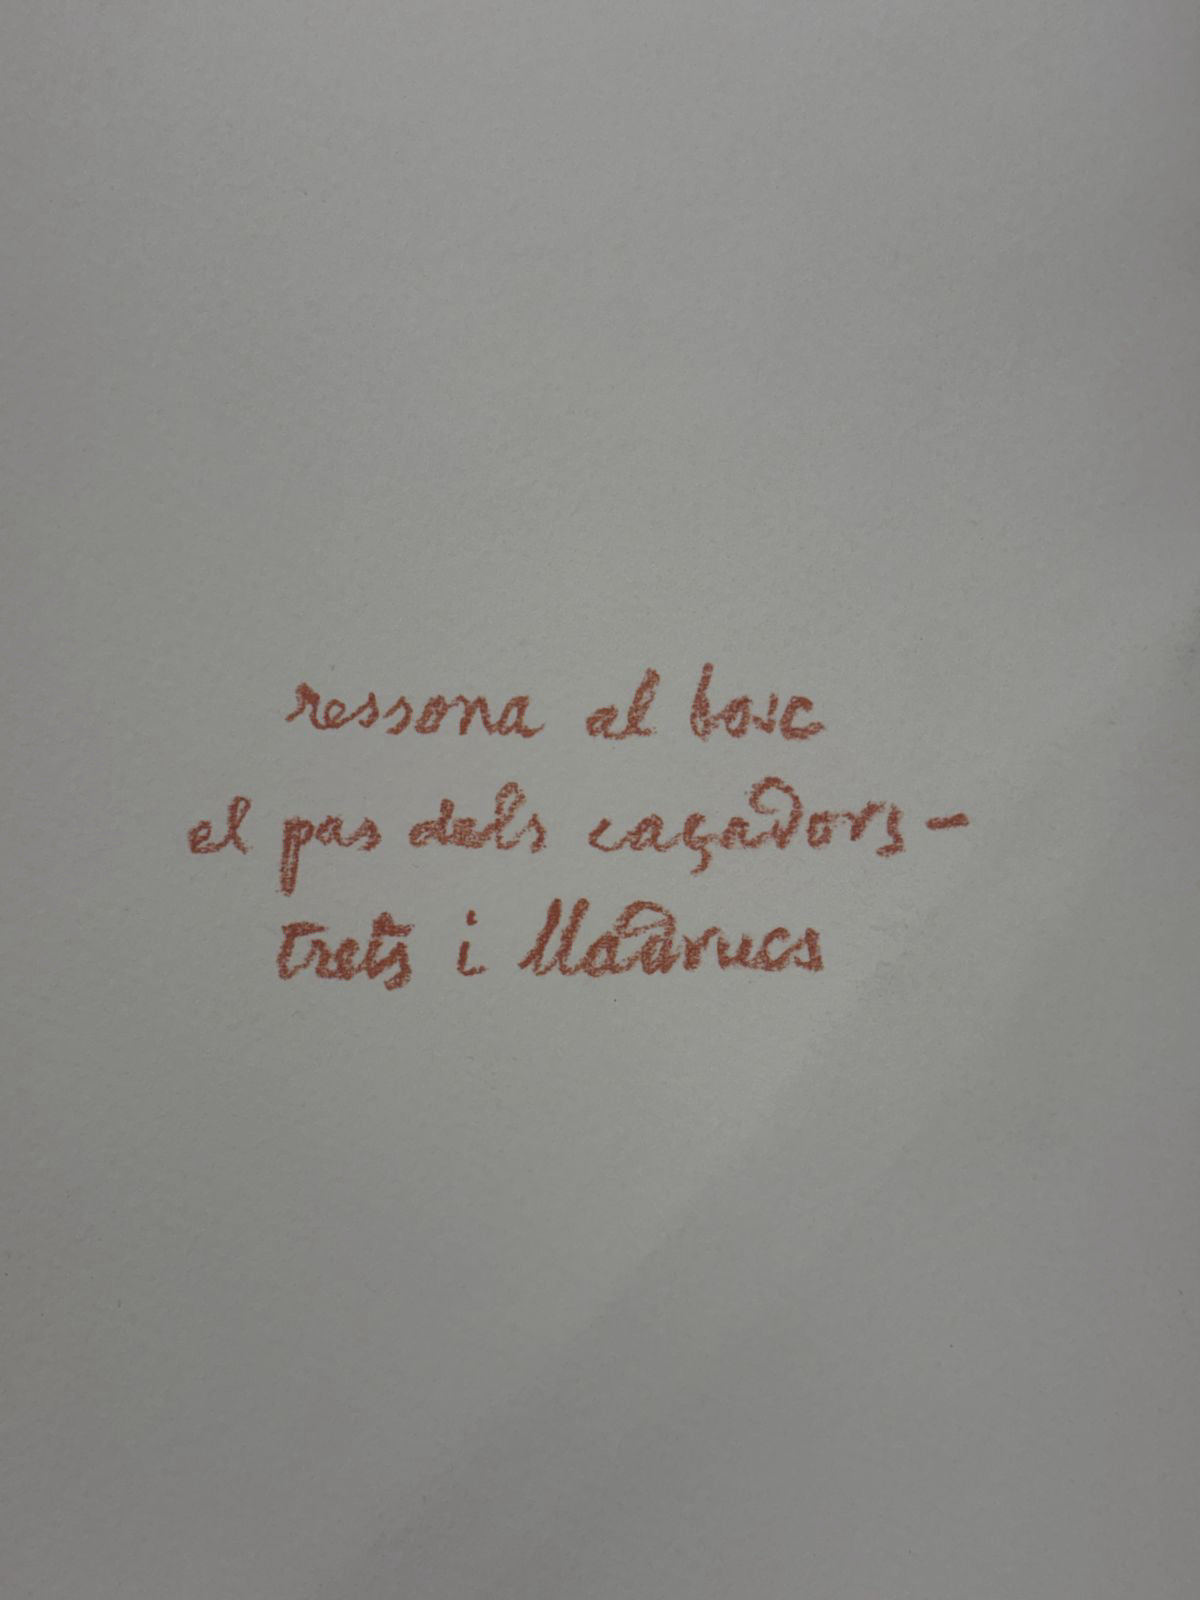 ressona al bosc
el pas dels caçadors –
trets i lladrucs